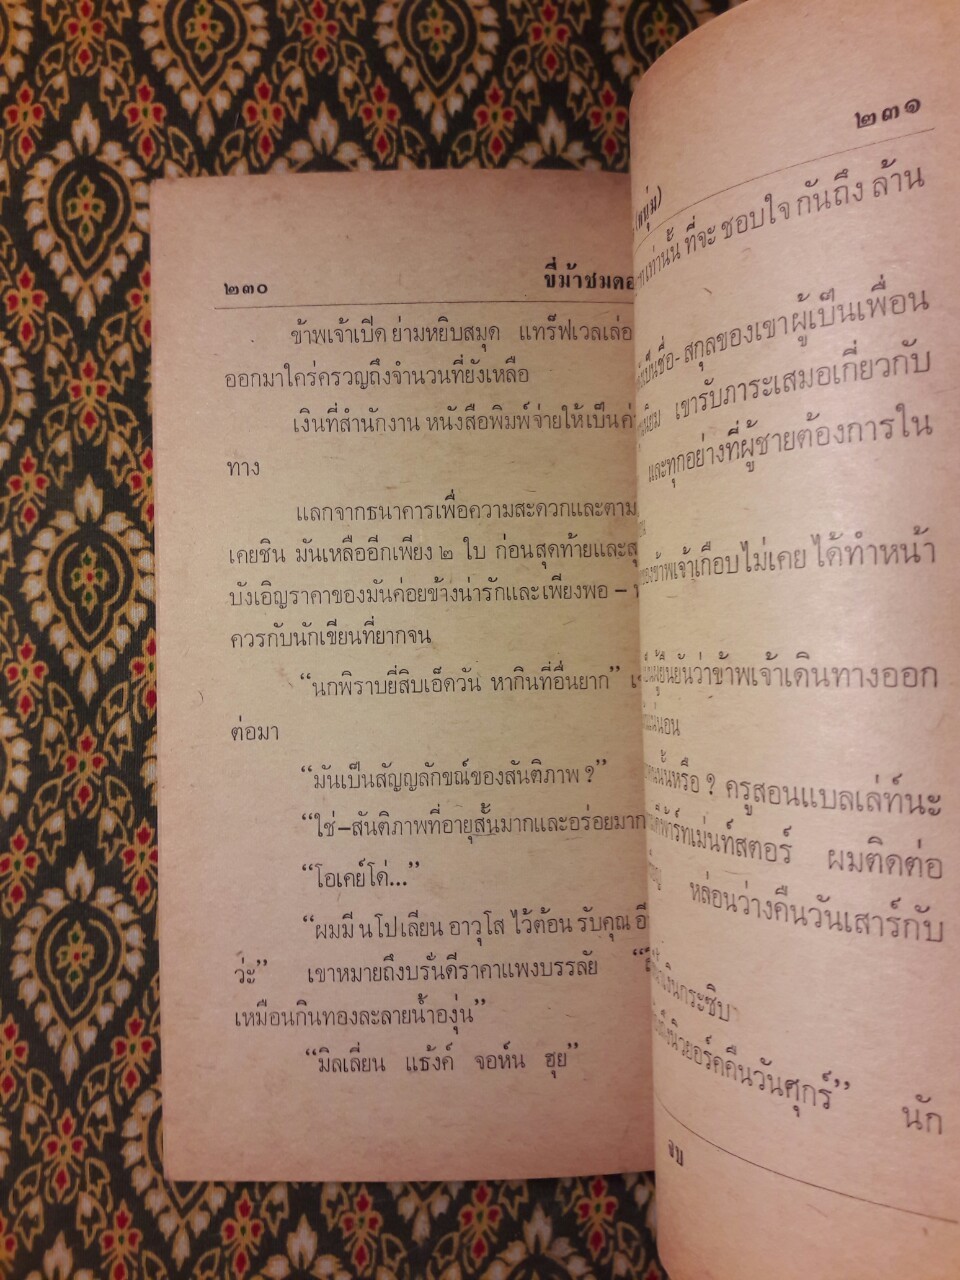 ๒๓๐
ขี่ม้าชมดอ
ข้าพเจ้าเปิด ย่ามหยิบสมุด แทร็ฟเวลเล่อ
ออกมาใคร่ครวญถึงจำนวนที่ยังเหลือ
เงินที่สำนักงาน หนังสือพิมพ์จ่ายให้เป็นค่า
ทาง
แลกจากธนาคารเพื่อความสะดวกและตาม
เคยชิน มันเหลืออีกเพียง ๒ ใบ ก่อนสุดท้ายและสุ
บังเอิญราคาของมันค่อยข้างน่ารักและเพียงพอ –
ควรกับนักเขียนที่ยากจน
“นกพิราบยี่สิบเอ็ดวัน หากินที่อื่นยาก”
ต่อมา
“มันเป็นสัญญลักขณ์ของสันติภาพ ?”
“ใช่–สันติภาพที่อายุสั้นมากและอร่อยมาก
“โอเคย์โด่...”
“ผมมี นโปเลียน อาวุโส ไว้ต้อน รับคุณ อี
ว่ะ” เขาหมายถึงบรั่นดีราคาแพงบรรลัย
เหมือนกินทองละลายน้ำองุ่น”
“มิลเลี่ยน แธ้งค์ จอห์น ฮุย”
๒๓๑
หนุ่ม)
เท่านั้น ที่จะ ชอบใจ กันถึง ล้าน
เป็นชื่อ- สกุลของเขาผู้เป็นเพื่อน
เขารับภาระเสมอเกี่ยวกับ
และทุกอย่างที่ผู้ชายต้องการใน
ของข้าพเจ้าเกือบไม่เคย ได้ทำหน้า
ยืนยันว่าข้าพเจ้าเดินทางออก
แน่นอน
นั้นหรือ ? ครูสอนแบลเล่ท์นะ
พาร์ทเม่นท์สตอร์ ผมติดต่อ
หล่อนว่างคืนวันเสาร์กับ
เงินกระซิบ
ถึงนิวยอร์คคืนวันศุกร์” นัก
จบ